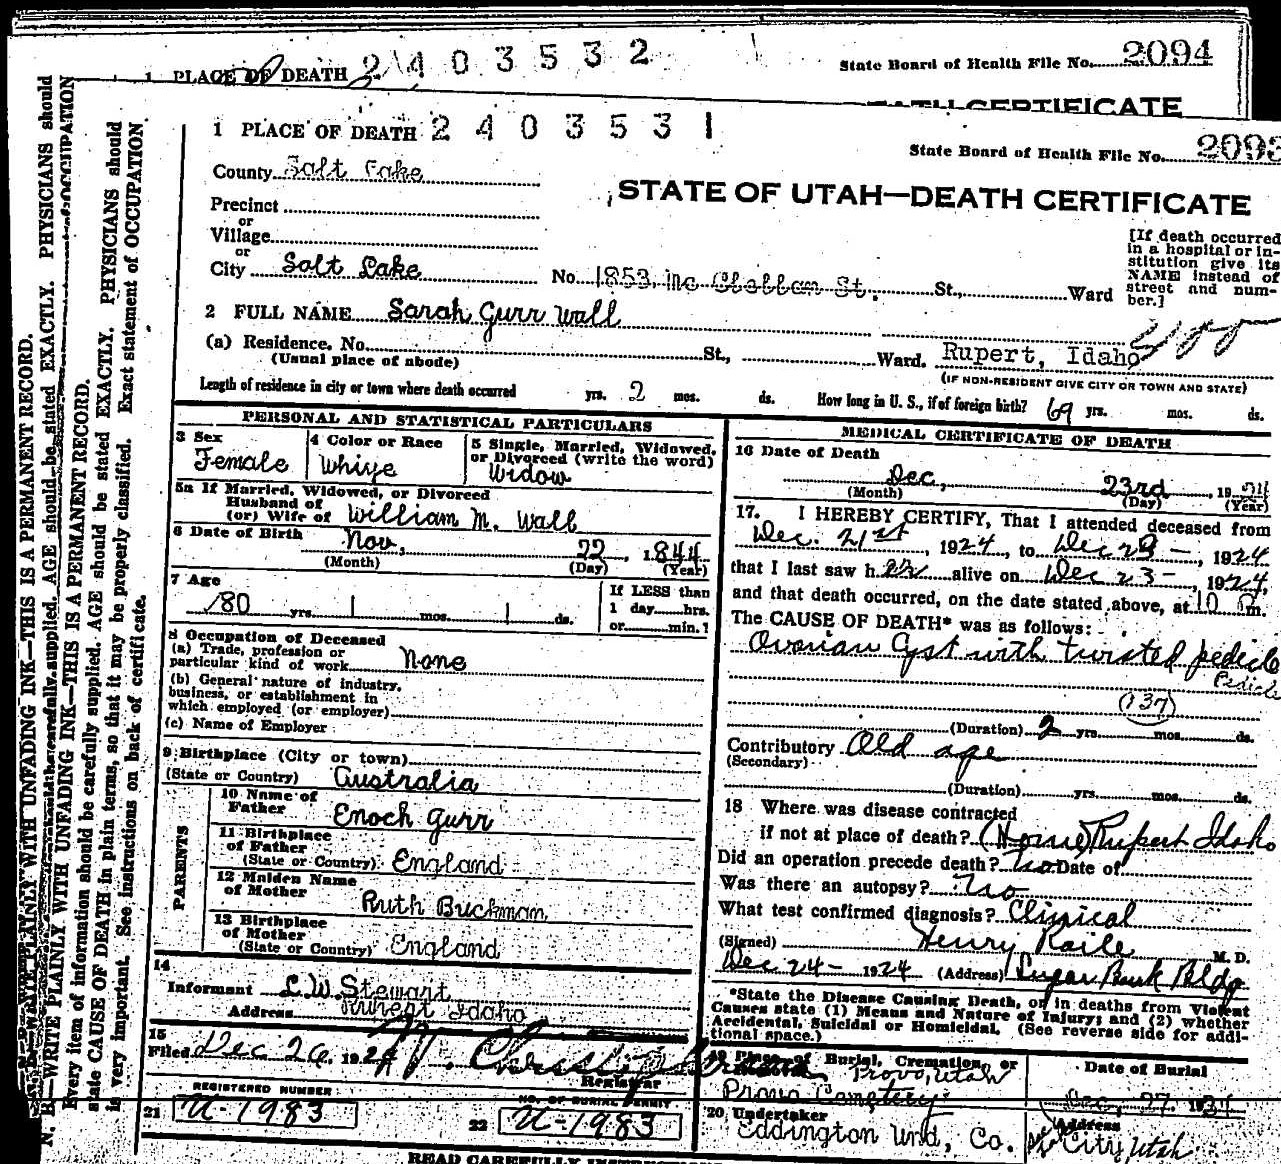 1 PLACE OF DEATH 2403532
State Board of Health File No. 2094
DEATH CERTIFICATE
1 PLACE OF DEATH 2403531
State Board of Health File No. 2093
County Salt Lake
STATE OF UTAH—DEATH CERTIFICATE
Precinct
or
Village
or
City Salt Lake No. 1853 Mc Clellan St. St., Ward
[If death occurred
in a hospital or in-
stitution give its
NAME instead of
street and num-
ber.]
2 FULL NAME Sarah Gurr Wall
(a) Residence. No. St., Ward. Rupert, Idaho
(Usual place of abode)
(IF NON-RESIDENT GIVE CITY OR TOWN AND STATE)
Length of residence in city or town where death occurred yrs. 2 mos. ds. How long in U. S., if of foreign birth? 69 yrs. mos. ds.
PERSONAL AND STATISTICAL PARTICULARS
3 Sex
Female
4 Color or Race
Whiye
5 Single, Married, Widowed,
or Divorced (write the word)
Widow
5a If Married, Widowed, or Divorced
Husband of
(or) Wife of William M. Wall
6 Date of Birth Nov, 22, 1844
(Month) (Day) (Year)
7 Age
80 yrs. mos. ds.
If LESS than
1 day hrs.
or min.?
8 Occupation of Deceased
(a) Trade, profession or
particular kind of work None
(b) General nature of industry,
business, or establishment in
which employed (or employer)
(c) Name of Employer
9 Birthplace (City or town)
(State or Country) Australia
PARENTS
10 Name of
Father Enoch Gurr
11 Birthplace
of Father
(State or Country) England
12 Maiden Name
of Mother Ruth Buckman
13 Birthplace
of Mother
(State or Country) England
14
Informant L.W. Stewart
Address Rupert Idaho
15
Filed Dec 26 1924
Registrar
REGISTERED NUMBER
21 U-1983
NO. OF BURIAL PERMIT
22 U-1983
MEDICAL CERTIFICATE OF DEATH
16 Date of Death
Dec, 23rd, 19
(Month) (Day) (Year)
17. I HEREBY CERTIFY, That I attended deceased from
Dec. 21st, 1924, to Dec 23-, 1924
that I last saw her alive on Dec 23-, 1924,
and that death occurred, on the date stated above, at 10 P m.
The CAUSE OF DEATH* was as follows:
Ovarian Cyst with twisted pedicle
Pedicle
(137)
(Duration) 2 yrs. mos. ds.
Contributory Old age
(Secondary)
(Duration) yrs. mos. ds.
18 Where was disease contracted
if not at place of death? (Home) Rupert Idaho
Did an operation precede death? No Date of
Was there an autopsy? No
What test confirmed diagnosis? Clinical
(Signed) Henry Raile M. D.
Dec 24- 1924 (Address) Sugar Bank Bldg
*State the Disease Causing Death, or in deaths from Violent
Causes state (1) Means and Nature of Injury; and (2) whether
Accidental, Suicidal or Homicidal. (See reverse side for addi-
tional space.)
19 Place of Burial, Cremation, or
Provo, Utah
Provo Cemetery
Date of Burial
Dec, 27, 19
20 Undertaker
Eddington Und, Co.
Address
City, Utah
READ CAREFULLY INSTRUCTIONS
N. B.—WRITE PLAINLY WITH UNFADING INK—THIS IS A PERMANENT RECORD.
Every item of information should be carefully supplied. AGE should be stated EXACTLY. PHYSICIANS should
state CAUSE OF DEATH in plain terms, so that it may be properly classified. Exact statement of OCCUPATION
is very important. See instructions on back of certificate.